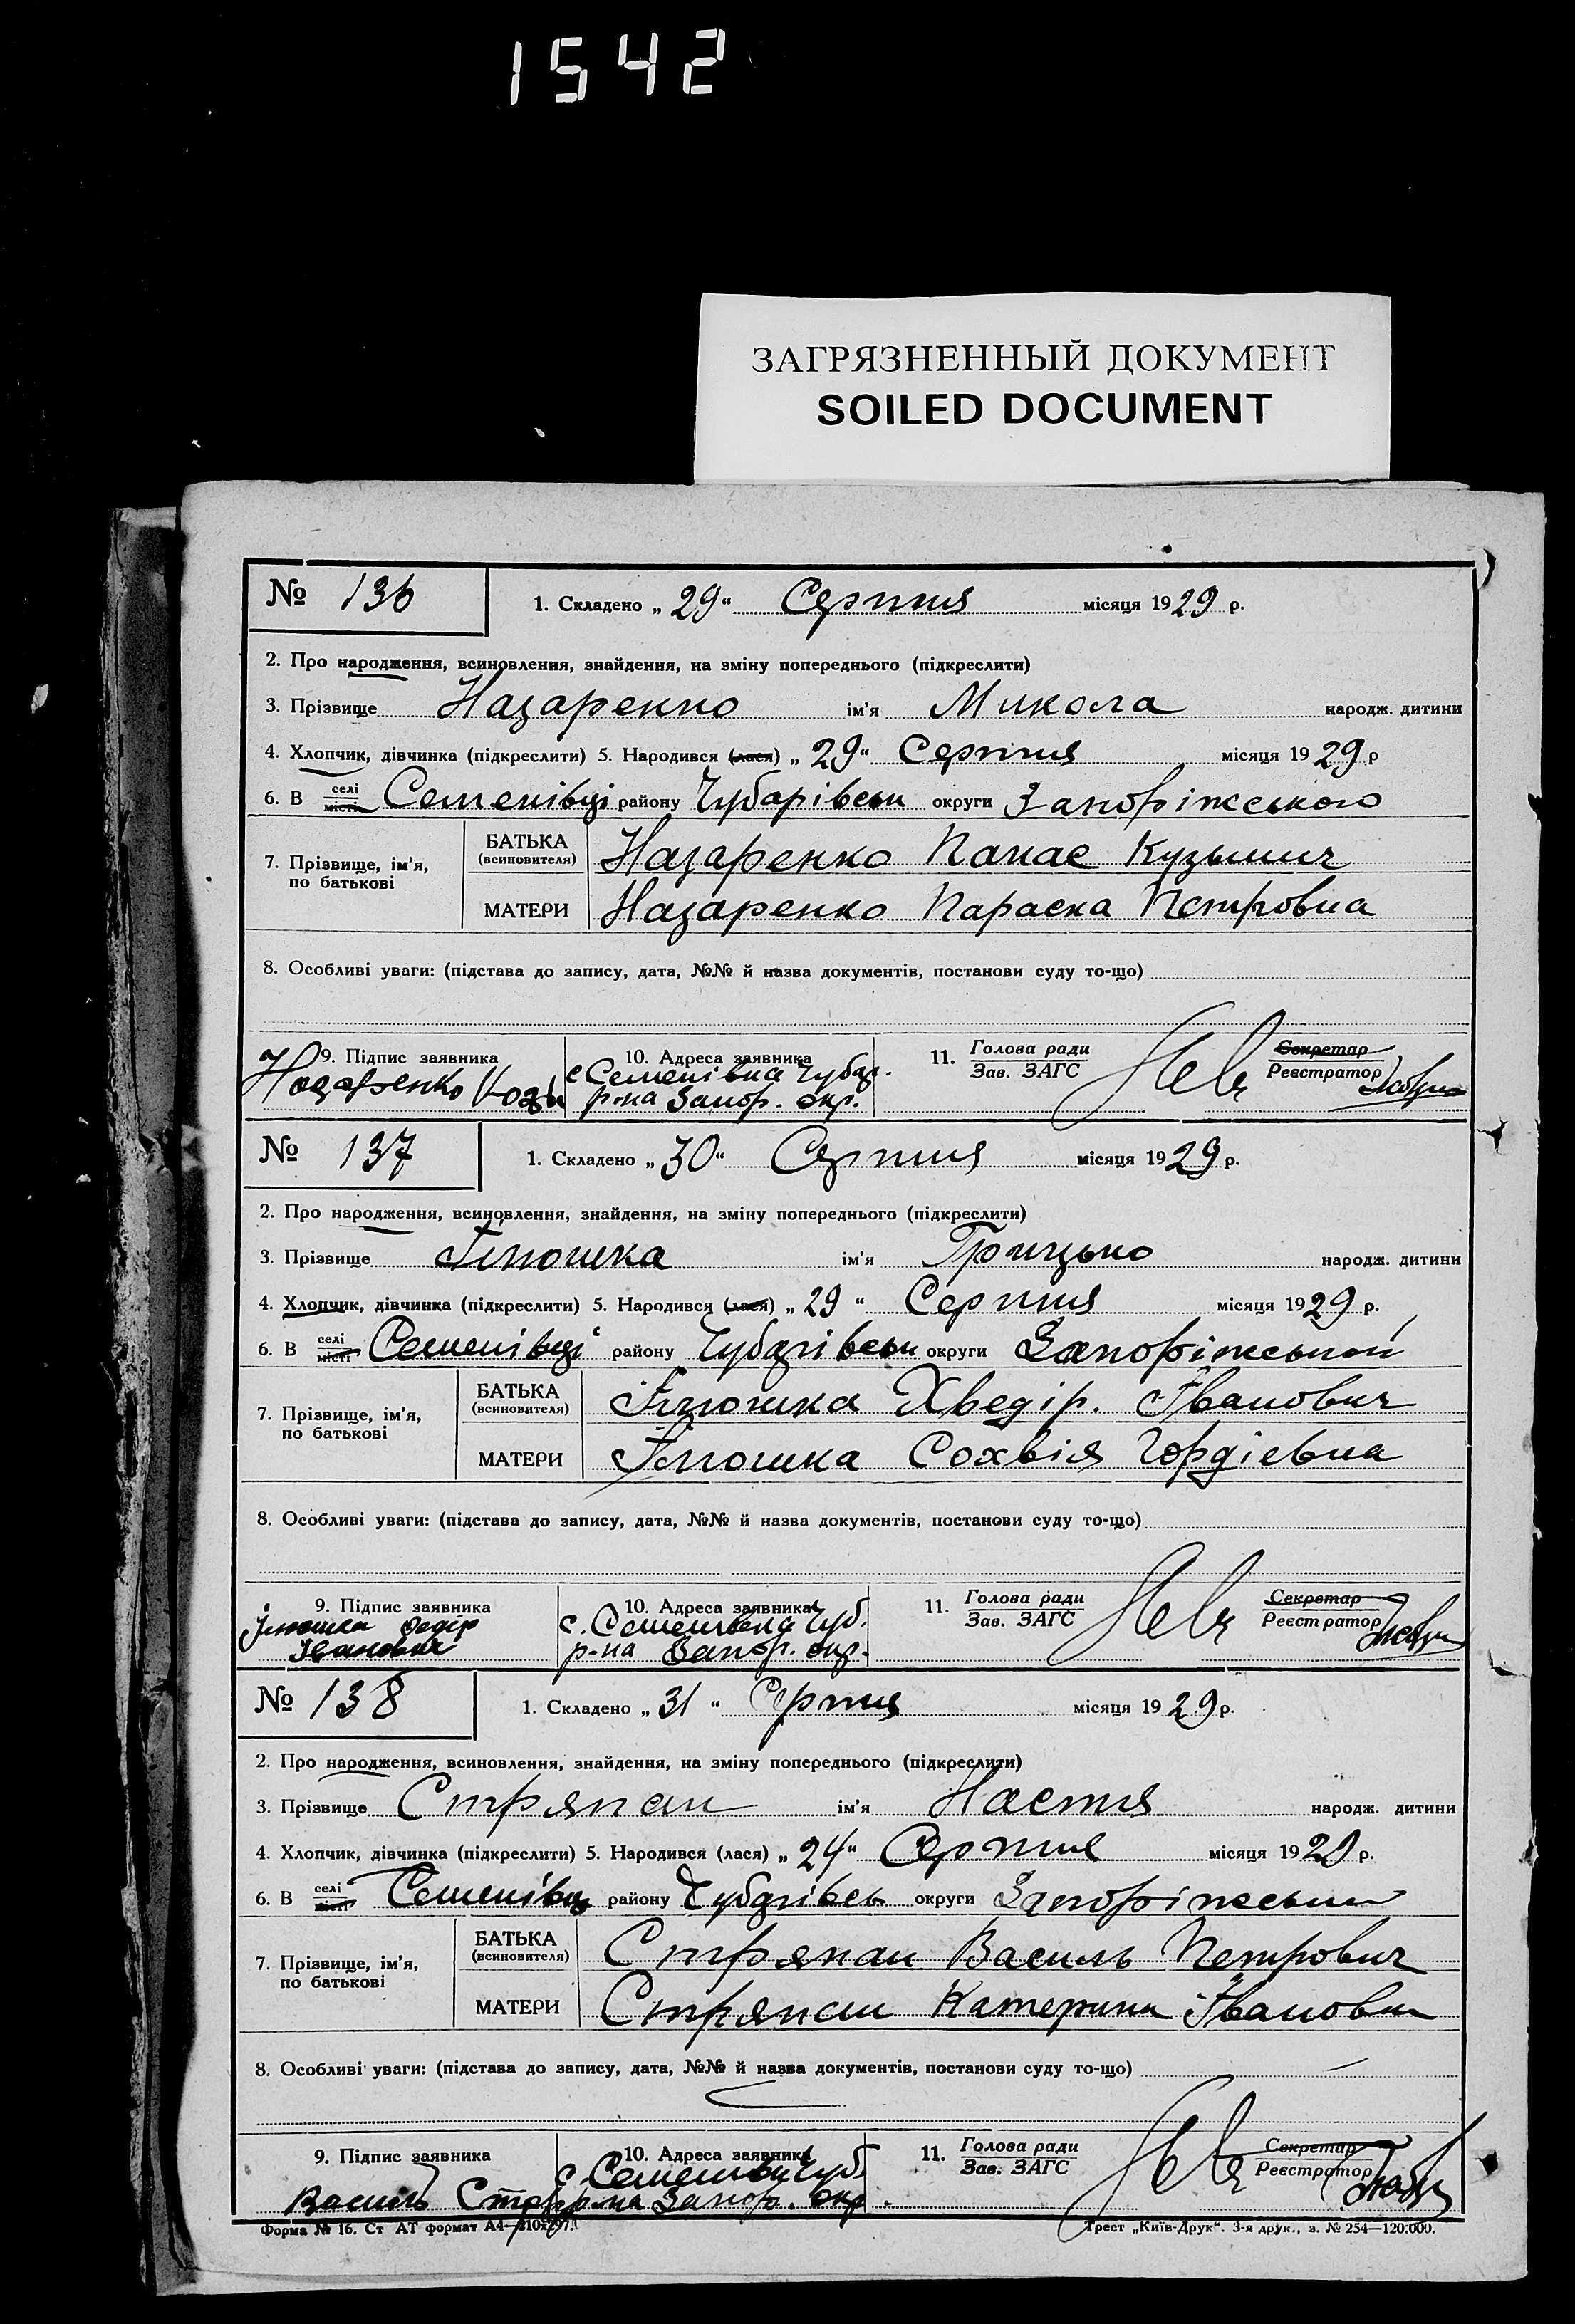 1542
ЗАГРЯЗНЕННЫЙ ДОКУМЕНТ
SOILED DOCUMENT
№ 136 1. Складено „ 29 “ Серпня місяця 1929 р.
2. Про народження, всиновлення, знайдення, на зміну попереднього (підкреслити)
3. Прізвище Назаренко ім'я Микола народж. дитини
4. Хлопчик, дівчинка (підкреслити) 5. Народився (лася) „ 29 “ Серпня місяця 1929 р
6. В селі місті Семенівці району Чубарівськ округи Запоріжського
7. Прізвище, ім'я, по батькові
БАТЬКА (всиновителя) Назаренко Панас Кузьмич
МАТЕРИ Назаренко Параска Петровна
8. Особливі уваги: (підстава до запису, дата, №№ й назва документів, постанови суду то-що)
9. Підпис заявника 10. Адреса заявника 11. Голова ради Зав. ЗАГС Секретар Реєстратор
Назаренко с Семенівка Чубар.
р-на Запор. окр.
№ 137 1. Складено „ 30 “ Серпня місяця 1929 р.
2. Про народження, всиновлення, знайдення, на зміну попереднього (підкреслити)
3. Прізвище Ілюшка ім'я Грицько народж. дитини
4. Хлопчик, дівчинка (підкреслити) 5. Народився (лася) „ 29 “ Серпня місяця 1929 р.
6. В селі місті Семенівці району Чубарівськ округи Запоріжський
7. Прізвище, ім'я, по батькові
БАТЬКА (всиновителя) Ілюшка Хведір. Іванович
МАТЕРИ Ілюшка Сохвія Гордіевна
8. Особливі уваги: (підстава до запису, дата, №№ й назва документів, постанови суду то-що)
9. Підпис заявника 10. Адреса заявника 11. Голова ради Зав. ЗАГС Секретар Реєстратор
Ілюшка Федір с. Семенівка Чуб.
Іванович р-на Запор. окр.
№ 138 1. Складено „ 31 “ Серпня місяця 1929 р.
2. Про народження, всиновлення, знайдення, на зміну попереднього (підкреслити)
3. Прізвище Стряпан ім'я Настя народж. дитини
4. Хлопчик, дівчинка (підкреслити) 5. Народився (лася) „ 24 “ Серпня місяця 1929 р.
6. В селі місті Семенівці району Чубарівсь округи Запоріжськи
7. Прізвище, ім'я, по батькові
БАТЬКА (всиновителя) Стряпан Василь Петрович
МАТЕРИ Стряпан Катерина Івановн
8. Особливі уваги: (підстава до запису, дата, №№ й назва документів, постанови суду то-що)
9. Підпис заявника 10. Адреса заявника 11. Голова ради Зав. ЗАГС Секретар Реєстратор
с. Семенівки Чуб.
Василь р-на Запор. окр.
Форма № 16. Ст АТ формат А4—210×297. Трест „Київ-Друк“. 3-я друк., з. № 254—120.000.